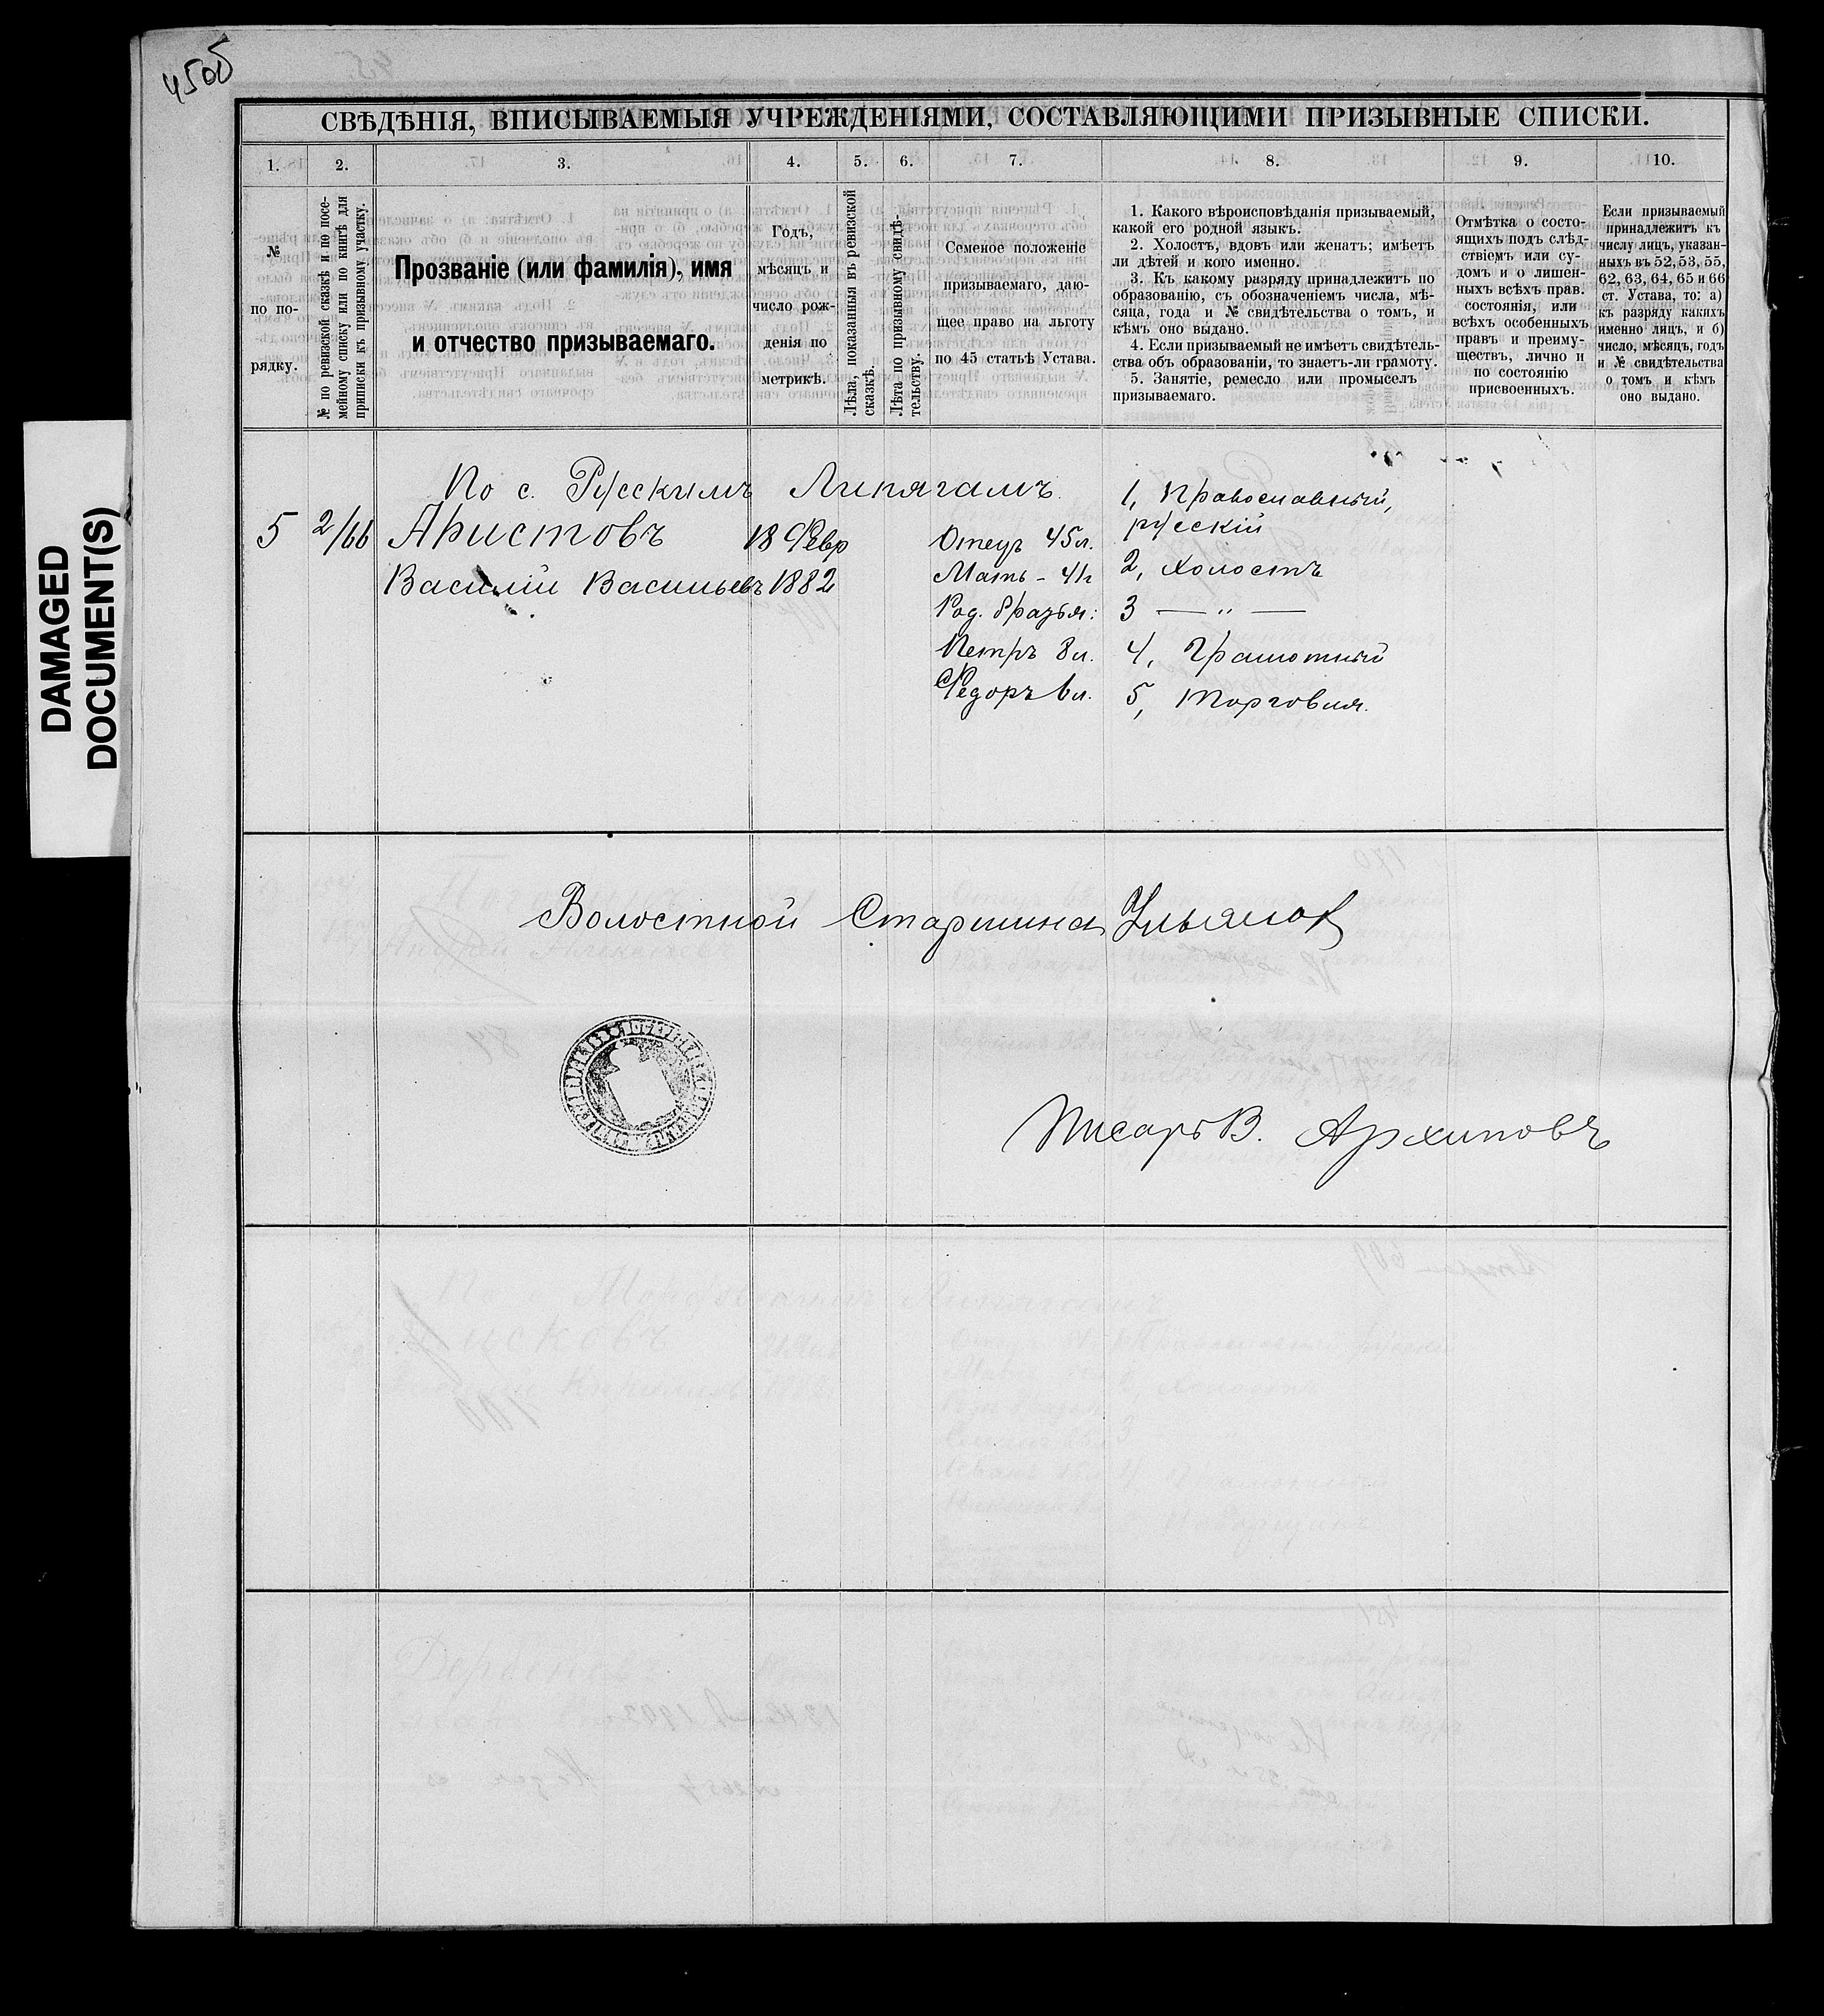 45об
DAMAGED
DOCUMENT(S)
СВѢДѢНІЯ, ВПИСЫВАЕМЫЯ УЧРЕЖДЕНІЯМИ, СОСТАВЛЯЮЩИМИ ПРИЗЫВНЫЕ СПИСКИ.
1. 2. 3. 4. 5. 6. 7. 8. 9. 10.
№
по по-
рядку.
№ по ревизской сказкѣ и по посе-
мейному списку или по книгѣ для
приписки къ призывному участку.
Прозваніе (или фамилія), имя
и отчество призываемаго.
Годъ,
мѣсяцъ и
число рож-
денія по
метрикѣ.
Лѣта, показанныя въ ревизской
сказкѣ.
Лѣта по призывному свидѣ-
тельству.
Семеное положеніе
призываемаго, даю-
щее право на льготу
по 45 статьѣ Устава.
1. Какого вѣроисповѣданія призываемый,
какой его родной языкъ.
2. Холостъ, вдовъ или женатъ; имѣетъ
ли дѣтей и кого именно.
3. Къ какому разряду принадлежитъ по
образованію, съ обозначеніемъ числа, мѣ-
сяца, года и № свидѣтельства о томъ, и
кѣмъ оно выдано.
4. Если призываемый не имѣетъ свидѣтель-
ства объ образованіи, то знаетъ-ли грамоту.
5. Занятіе, ремесло или промыселъ
призываемаго.
Отмѣтка о состо-
ящихъ подъ слѣд-
ствіемъ или су-
домъ и о лишен-
ныхъ всѣхъ прав.
состоянія, или
всѣхъ особенныхъ
правъ и преиму-
ществъ, лично и
по состоянію
присвоенныхъ.
Если призываемый
принадлежитъ къ
числу лицъ, указан-
ныхъ въ 52, 53, 55,
62, 63, 64, 65 и 66
ст. Устава, то: а)
къ разряду какихъ
именно лицъ, и б)
число, мѣсяцъ, годъ
и № свидѣтельства
о томъ и кѣмъ
оно выдано.
По с. Русскимъ Липягамъ
5 2/66 Аристовъ 18 Февр
Василій Васильевъ 1882
Отецъ 45 л.
Мать - 41 г
Род. братья:
Петръ 8 л.
Федоръ 6 л.
1, Православный,
русскій
2, Холостъ
3 — " —
4, Грамотный
5, Торговля.
Волостной Старшина Ульянов
Писарь В. Архиповъ